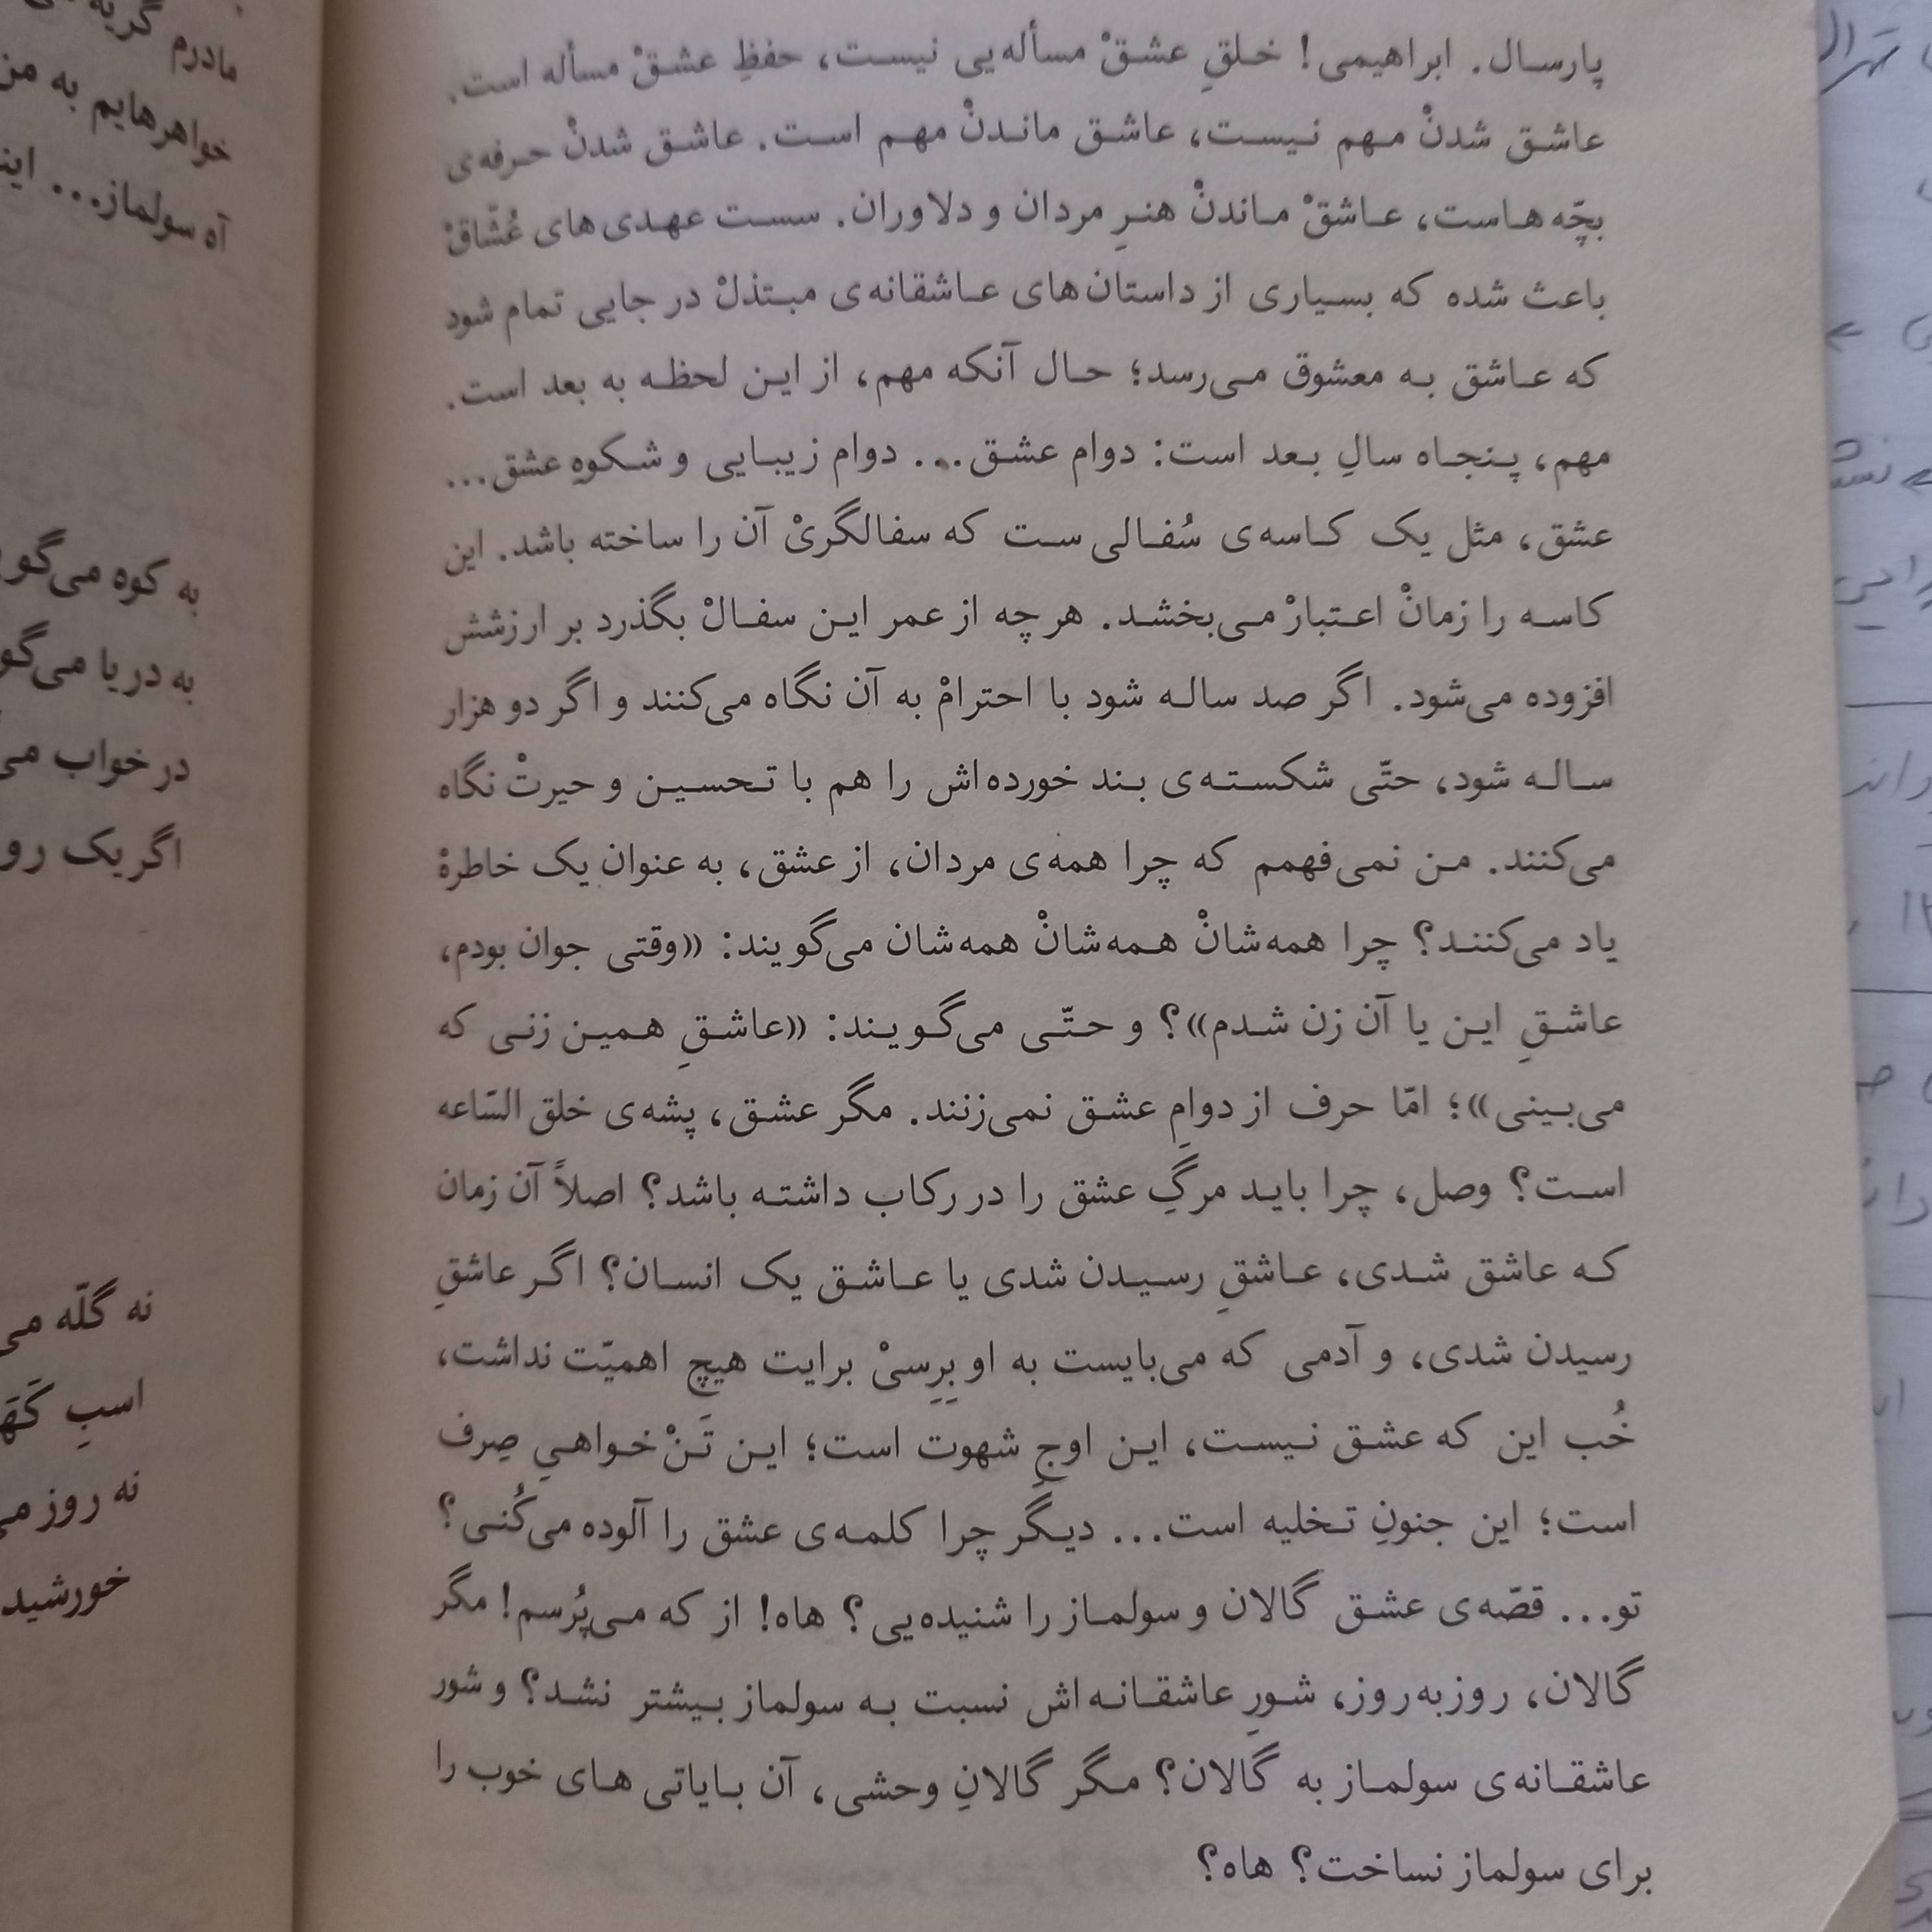 پارسال. ابراهیمی! خلقِ عشقْ مسأله‌یی نیست، حفظِ عشقْ مسأله است.
عاشق شدنْ مهم نیست، عاشق ماندنْ مهم است. عاشق شدنْ حرفه‌ی
بچّه‌هاست، عاشقْ ماندنْ هنرِ مردان و دلاوران. سست عهدی‌های عُشّاقْ
باعث شده که بسیاری از داستان‌های عاشقانه‌ی مبتذلْ در جایی تمام شود
که عاشق به معشوق می‌رسد؛ حال آنکه مهم، از این لحظه به بعد است.
مهم، پنجاه سالِ بعد است: دوام عشق... دوام زیبایی و شکوهِ عشق...
عشق، مثل یک کاسه‌ی سُفالی‌ست که سفالگریْ آن را ساخته باشد. این
کاسه را زمانْ اعتبارْ می‌بخشد. هر چه از عمر این سفالْ بگذرد بر ارزشش
افزوده می‌شود. اگر صد ساله شود با احترامْ به آن نگاه می‌کنند و اگر دو هزار
ساله شود، حتّی شکسته‌ی بند خورده‌اش را هم با تحسین و حیرتْ نگاه
می‌کنند. من نمی‌فهمم که چرا همه‌ی مردان، از عشق، به عنوان یک خاطرهْ
یاد می‌کنند؟ چرا همه‌شانْ همه‌شانْ همه‌شان می‌گویند: «وقتی جوان بودم،
عاشقِ این یا آن زن شدم»؟ و حتّی می‌گویند: «عاشقِ همین زنی که
می‌بینی»؛ امّا حرف از دوامِ عشق نمی‌زنند. مگر عشق، پشه‌ی خلق السّاعه
است؟ وصل، چرا باید مرگِ عشق را در رکاب داشته باشد؟ اصلاً آن زمان
که عاشق شدی، عاشقِ رسیدن شدی یا عاشق یک انسان؟ اگر عاشقِ
رسیدن شدی، و آدمی که می‌بایست به او بِرِسیْ برایت هیچ اهمیّت نداشت،
خُب این که عشق نیست، این اوجِ شهوت است؛ این تَنْ‌خواهیِ صِرف
است؛ این جنونِ تخلیه است... دیگر چرا کلمه‌ی عشق را آلوده می‌کُنی؟
تو... قصّه‌ی عشق گالان و سولماز را شنیده‌یی؟ هاه! از که می‌پُرسم! مگر
گالان، روزبه‌روز، شورِ عاشقانه‌اش نسبت به سولماز بیشتر نشد؟ و شور
عاشقانه‌ی سولماز به گالان؟ مگر گالانِ وحشی، آن بایاتی‌های خوب را
برای سولماز نساخت؟ هاه؟
مادرم گریه
خواهرهایم به من
آه سولماز...
به کوه
به دریا
در خواب
اگر یک
نه گلّه
اسبِ
نه روز
خورشید